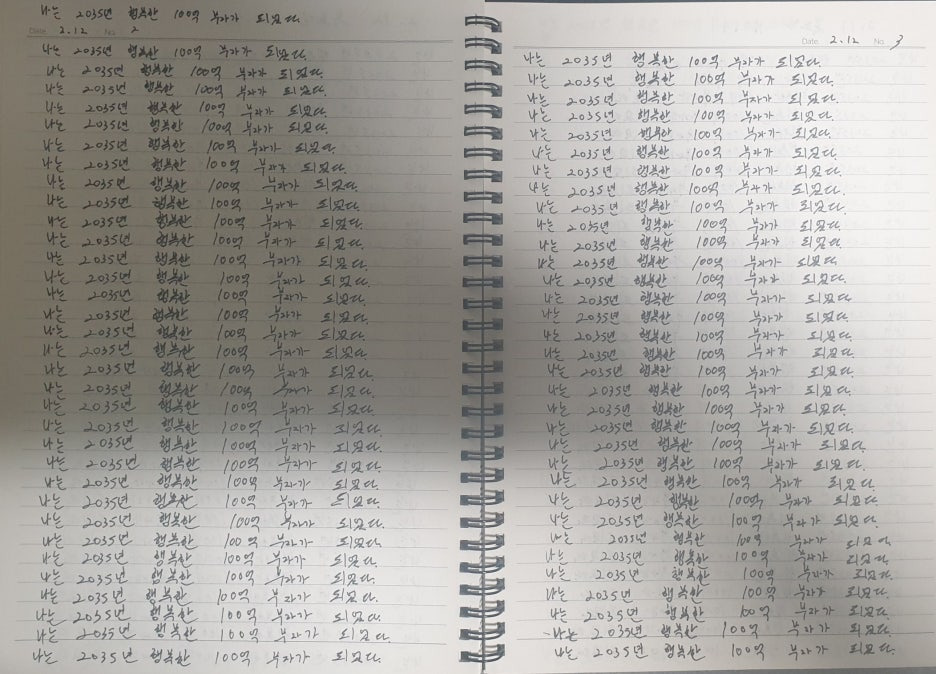 나는 2035년 행복한 100억 부자가 되었다.
Date 2.12 No. 2
나는 2035년 행복한 100억 부자가 되었다.
나는 2035년 행복한 100억 부자가 되었다.
나는 2035년 행복한 100억 부자가 되었다.
나는 2035년 행복한 100억 부자가 되었다.
나는 2035년 행복한 100억 부자가 되었다.
나는 2035년 행복한 100억 부자가 되었다.
나는 2035년 행복한 100억 부자가 되었다.
나는 2035년 행복한 100억 부자가 되었다.
나는 2035년 행복한 100억 부자가 되었다.
나는 2035년 행복한 100억 부자가 되었다.
나는 2035년 행복한 100억 부자가 되었다.
나는 2035년 행복한 100억 부자가 되었다.
나는 2035년 행복한 100억 부자가 되었다.
나는 2035년 행복한 100억 부자가 되었다.
나는 2035년 행복한 100억 부자가 되었다.
나는 2035년 행복한 100억 부자가 되었다.
나는 2035년 행복한 100억 부자가 되었다.
나는 2035년 행복한 100억 부자가 되었다.
나는 2035년 행복한 100억 부자가 되었다.
나는 2035년 행복한 100억 부자가 되었다.
나는 2035년 행복한 100억 부자가 되었다.
나는 2035년 행복한 100억 부자가 되었다.
나는 2035년 행복한 100억 부자가 되었다.
나는 2035년 행복한 100억 부자가 되었다.
나는 2035년 행복한 100억 부자가 되었다.
나는 2035년 행복한 100억 부자가 되었다.
나는 2035년 행복한 100억 부자가 되었다.
나는 2035년 행복한 100억 부자가 되었다.
나는 2035년 행복한 100억 부자가 되었다.
나는 2035년 행복한 100억 부자가 되었다.
나는 2035년 행복한 100억 부자가 되었다.
나는 2035년 행복한 100억 부자가 되었다.
나는 2035년 행복한 100억 부자가 되었다.
Date 2.12 No. 3
나는 2035년 행복한 100억 부자가 되었다.
나는 2035년 행복한 100억 부자가 되었다.
나는 2035년 행복한 100억 부자가 되었다.
나는 2035년 행복한 100억 부자가 되었다.
나는 2035년 행복한 100억 부자가 되었다.
나는 2035년 행복한 100억 부자가 되었다.
나는 2035년 행복한 100억 부자가 되었다.
나는 2035년 행복한 100억 부자가 되었다.
나는 2035년 행복한 100억 부자가 되었다.
나는 2035년 행복한 100억 부자가 되었다.
나는 2035년 행복한 100억 부자가 되었다.
나는 2035년 행복한 100억 부자가 되었다.
나는 2035년 행복한 100억 부자가 되었다.
나는 2035년 행복한 100억 부자가 되었다.
나는 2035년 행복한 100억 부자가 되었다.
나는 2035년 행복한 100억 부자가 되었다.
나는 2035년 행복한 100억 부자가 되었다.
나는 2035년 행복한 100억 부자가 되었다.
나는 2035년 행복한 100억 부자가 되었다.
나는 2035년 행복한 100억 부자가 되었다.
나는 2035년 행복한 100억 부자가 되었다.
나는 2035년 행복한 100억 부자가 되었다.
나는 2035년 행복한 100억 부자가 되었다.
나는 2035년 행복한 100억 부자가 되었다.
나는 2035년 행복한 100억 부자가 되었다.
나는 2035년 행복한 100억 부자가 되었다.
나는 2035년 행복한 100억 부자가 되었다.
나는 2035년 행복한 100억 부자가 되었다.
나는 2035년 행복한 100억 부자가 되었다.
나는 2035년 행복한 100억 부자가 되었다.
나는 2035년 행복한 100억 부자가 되었다.
나는 2035년 행복한 100억 부자가 되었다.
나는 2035년 행복한 100억 부자가 되었다.